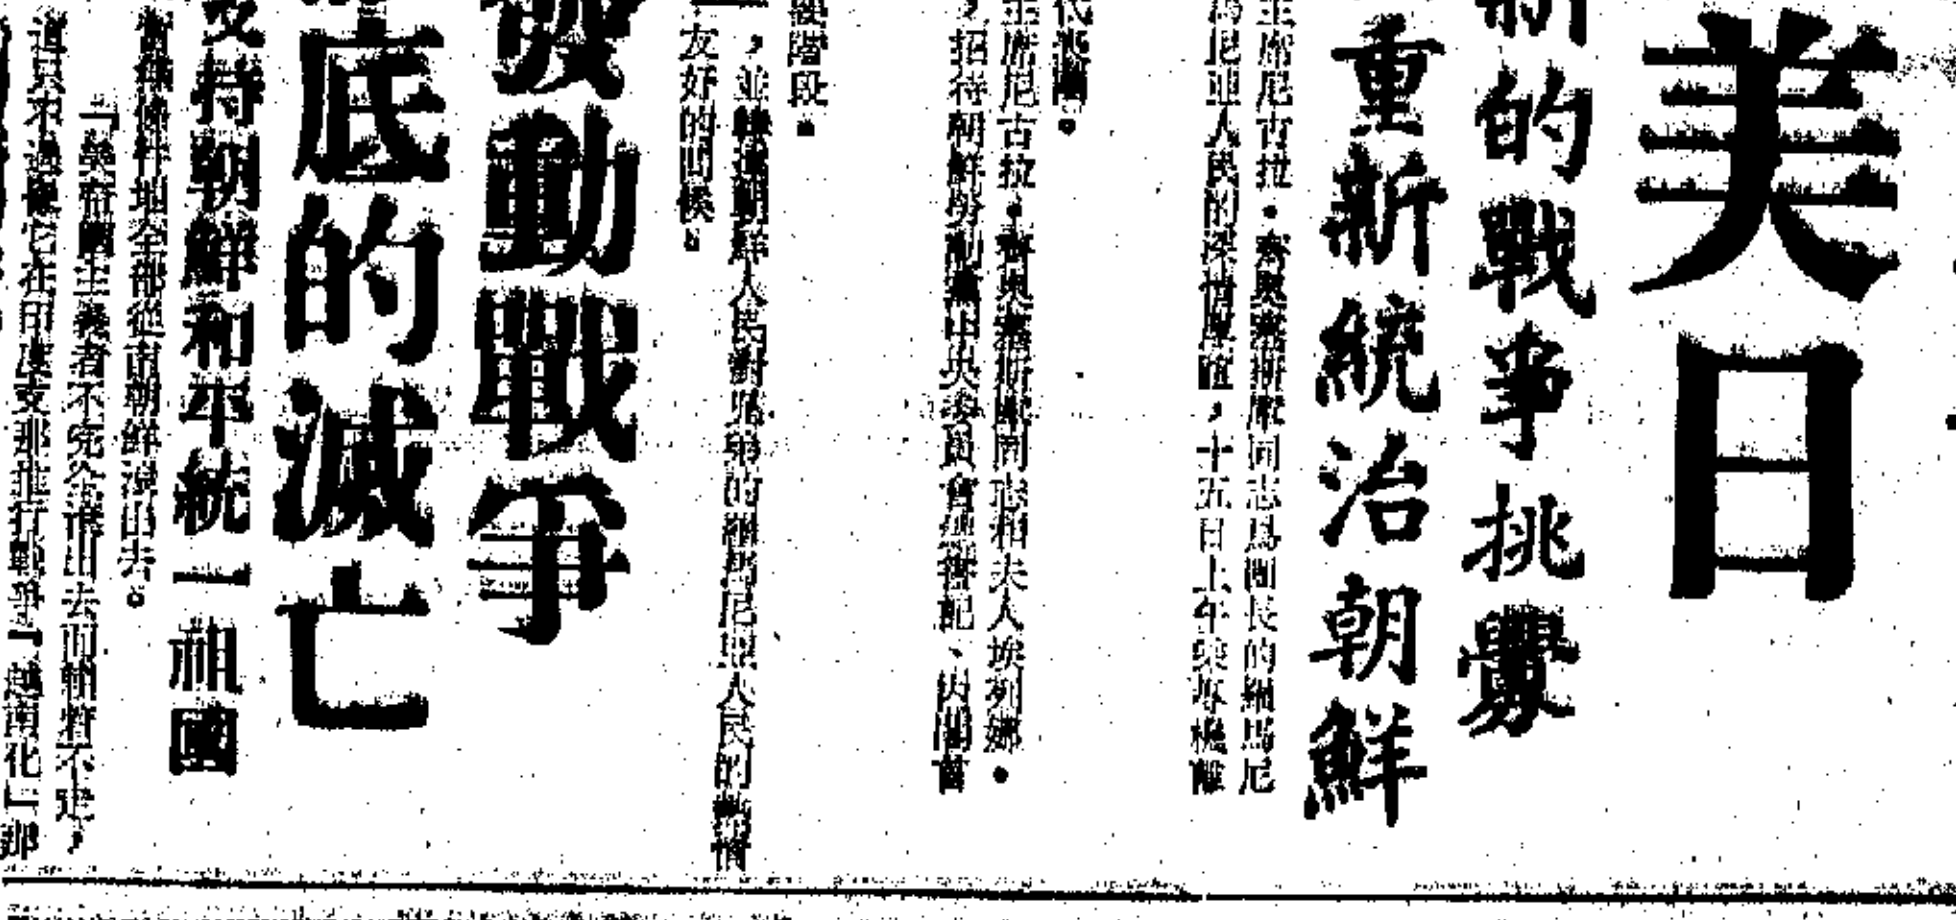 美日
新的戰爭挑釁
重新統治朝鮮
主席尼古拉·齊奧塞斯庫同志爲團長的羅馬尼
馬尼亞人民的深情厚誼，十五日上午乘專機離
代表團。
主席尼古拉·齊奧塞斯庫同志和夫人埃列娜·
，招待朝鮮勞動黨中央委員會總書記、內閣首
段階段。
，並轉達朝鮮人民對兄弟的羅馬尼亞人民的熱情
友好的問候。
發動戰爭
底的滅亡
支持朝鮮和平統一祖國
地全部從南朝鮮滾出去。
「美帝國主義者不完全滾出去而賴着不走，
這只不過是它在印度支那推行戰爭『越南化』那